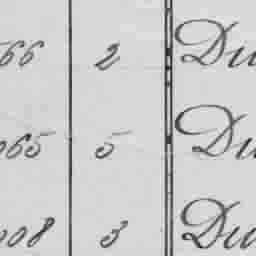 66 2 Du
065 5 Du
008 3 Du